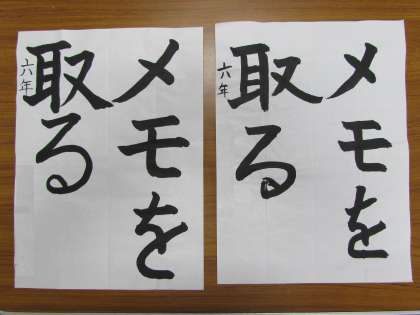 メモを
取る
六年
メモを
取る
六年